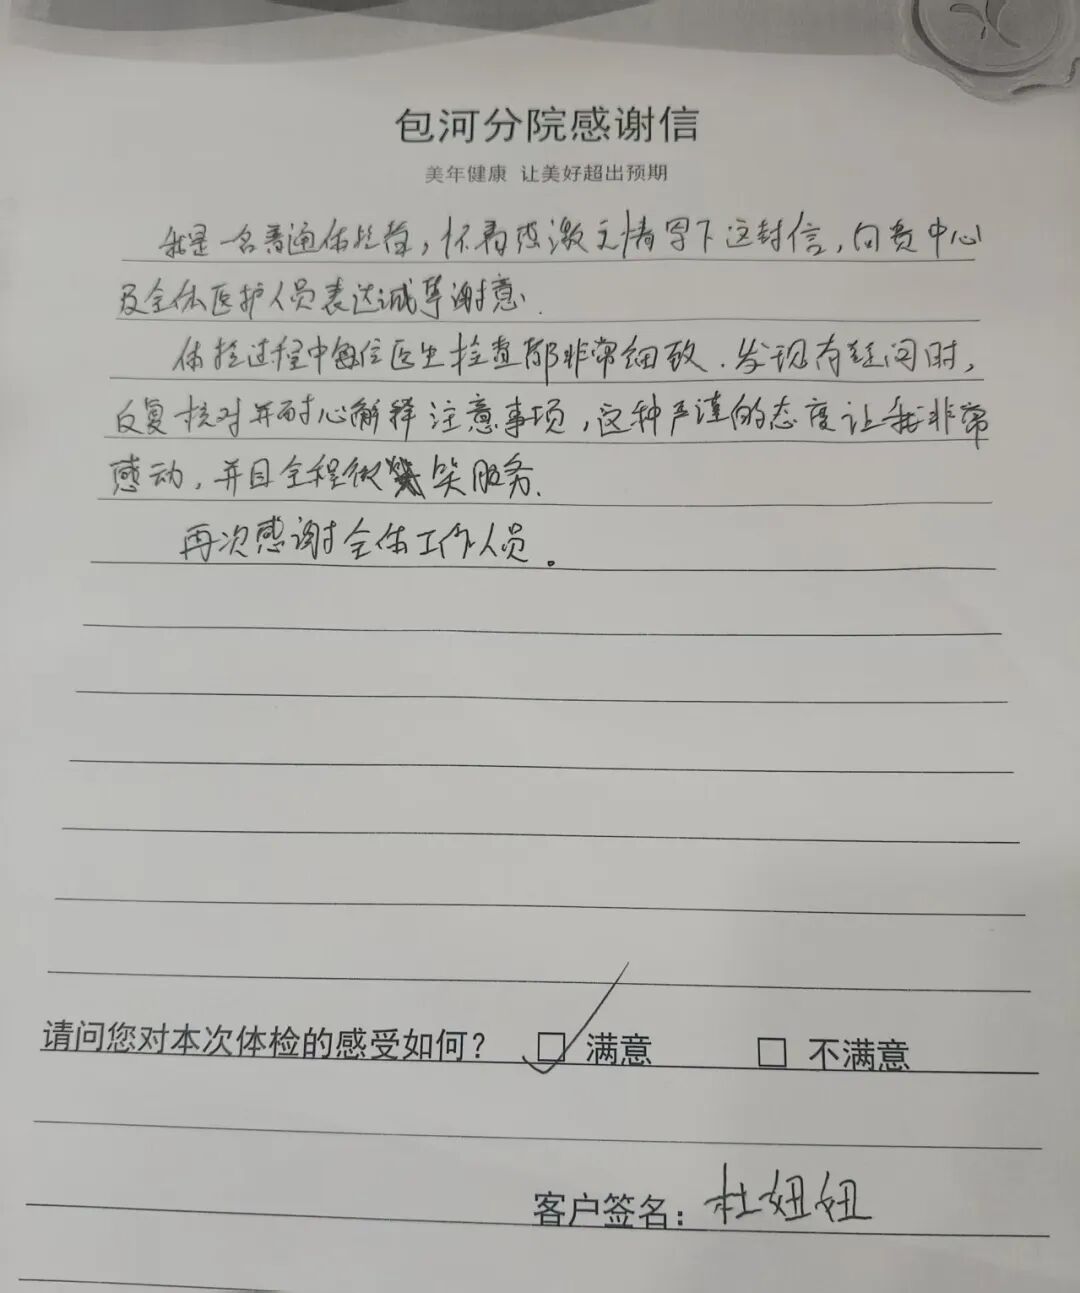 包河分院感谢信
美年健康 让美好超出预期
我是一名普通体检者，怀着感激之情写下这封信，向贵中心
及全体医护人员表达诚挚谢意.
体检过程中每位医生检查都非常细致.发现有疑问时，
反复核对并耐心解释注意事项，这种严谨的态度让我非常
感动，并且全程微笑服务.
再次感谢全体工作人员。
请问您对本次体检的感受如何？ ☑ 满意 □ 不满意
客户签名：杜妞妞